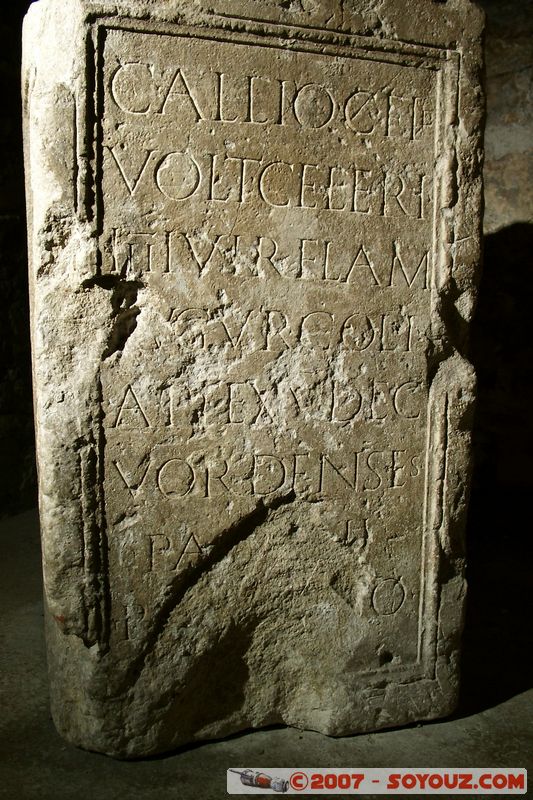 C ALLIO C F
VOLT CELERI
IIIIVIR FLAM
VGVR COL I
APT EX V DEC
VORDENSES
PA
P O
©2007 - SOYOUZ.COM